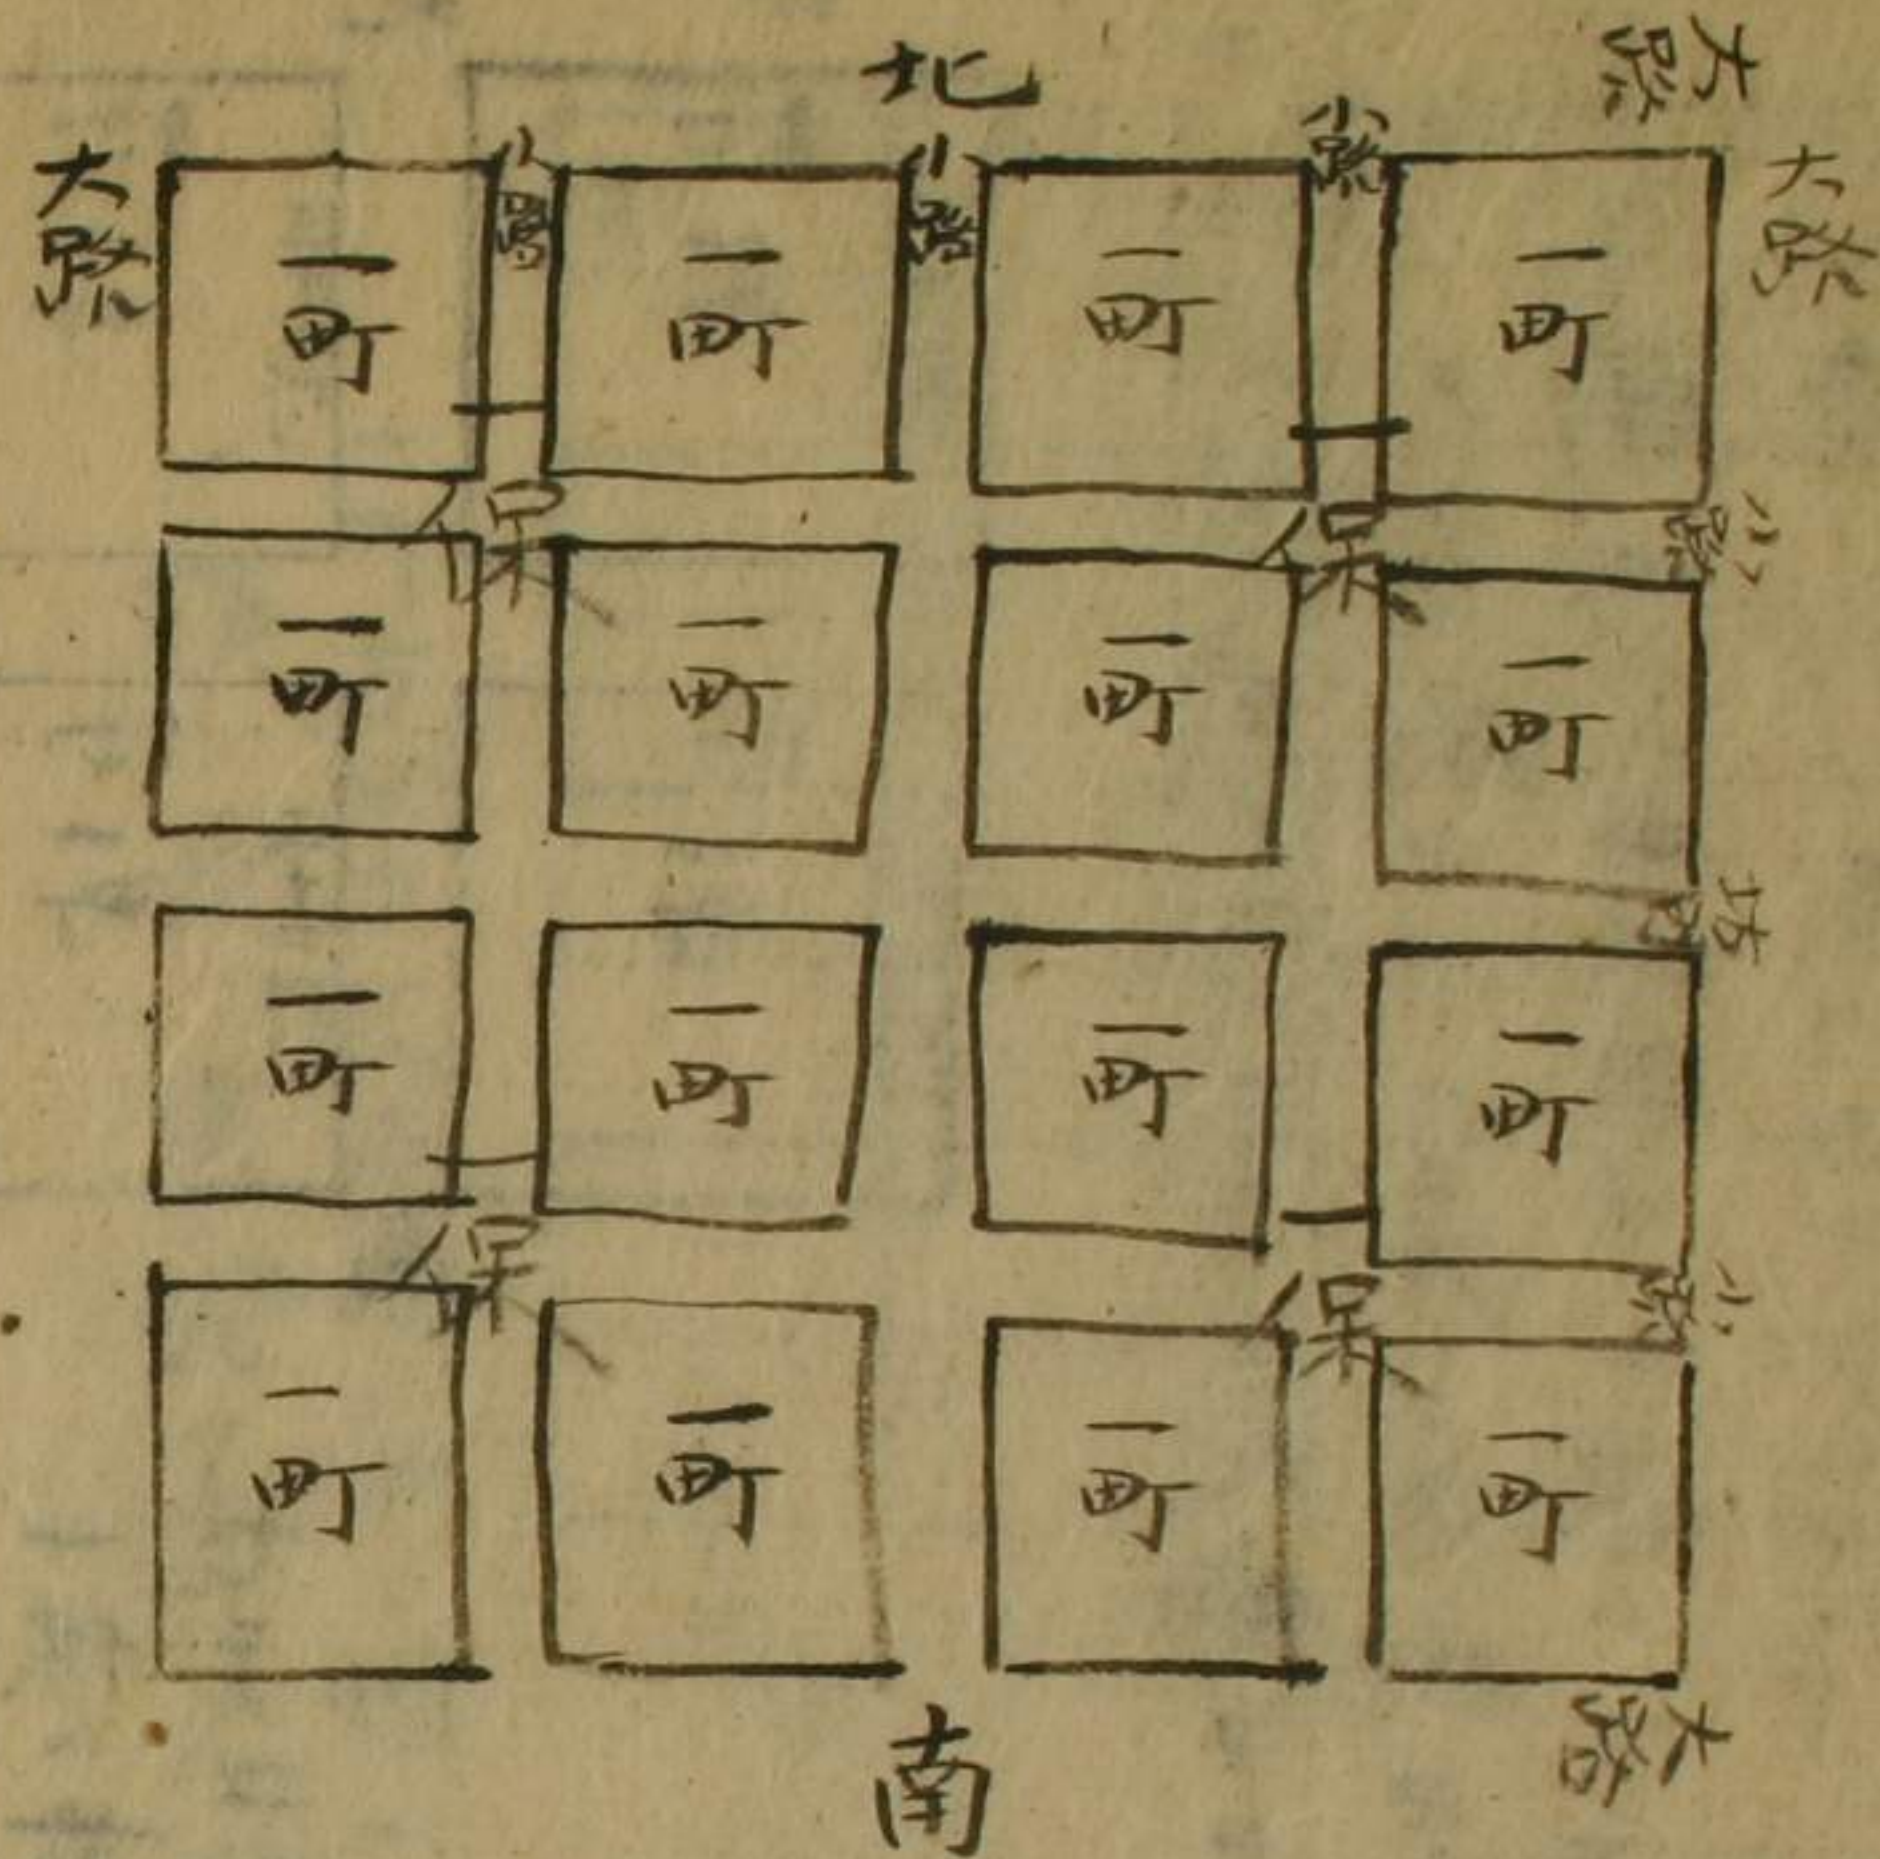 北
大路
大路
大路
小路
小路
小路
一町
一町
一町
一町
保
保
小路
一町
一町
一町
一町
一町
一町
一町
一町
保
保
小路
一町
一町
一町
一町
南
大路